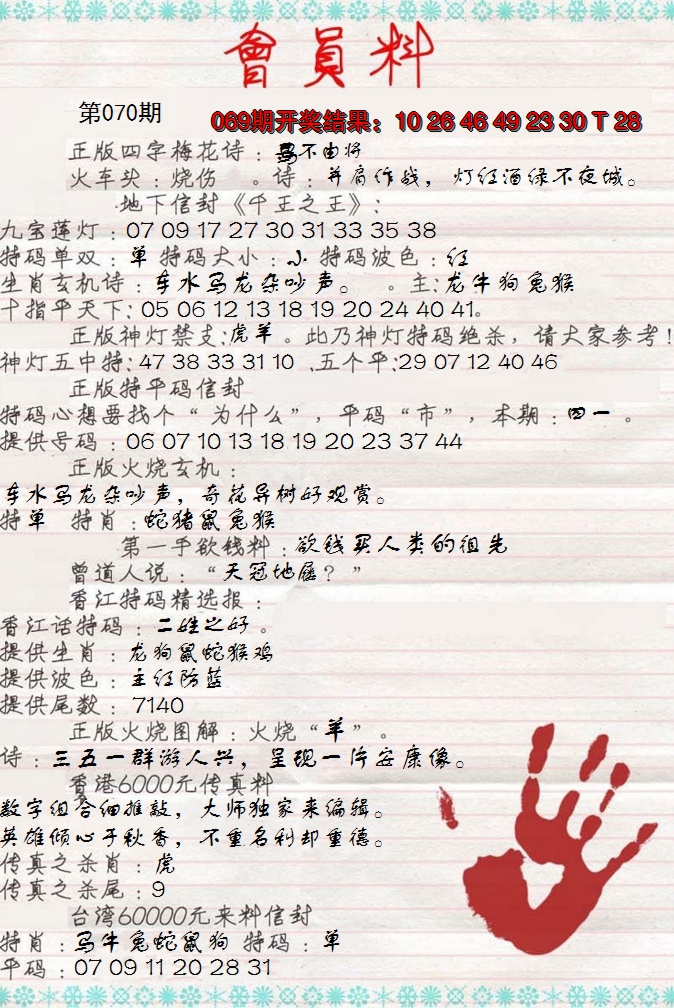 會員料
第070期
069期开奖结果：10 26 46 49 23 30 T 28
正版四字梅花诗：身不由将
火车头：烧伤 。诗：并肩作战，灯红酒绿不夜城。
地下信封《千王之王》：
九宝莲灯：07 09 17 27 30 31 33 35 38
特码单双：单 特码大小：小 特码波色：红
生肖玄机诗：车水马龙杂吵声。 。主：龙牛狗兔猴
十指平天下：05 06 12 13 18 19 20 24 40 41。
正版神灯禁支：虎羊 。此乃神灯特码绝杀，请大家参考！
神灯五中特：47 38 33 31 10 .五个平：29 07 12 40 46
正版特平码信封
特码心想要找个“为什么”，平码“市”，本期：四一 。
提供号码：06 07 10 13 18 19 20 23 37 44
正版火烧玄机：
车水马龙杂吵声，奇花异树好观赏。
特单 特肖：蛇猪鼠兔猴
第一手欲钱料：欲钱买人类的祖先
曾道人说：“天冠地屦？”
香江特码精选报：
香江话特码：二姓之好。
提供生肖：龙狗鼠蛇猴鸡
提供波色：主红防蓝
提供尾数：7140
正版火烧图解：火烧“羊”。
诗：三五一群游人兴，呈现一片安康像。
香港6000元传真料
数字组合细推敲，大师独家来编辑。
英雄倾心于秋香，不重名利却重德。
传真之杀肖：虎
传真之杀尾：9
台湾60000元来料信封
特肖：马牛兔蛇鼠狗 特码：单
平码：07 09 11 20 28 31